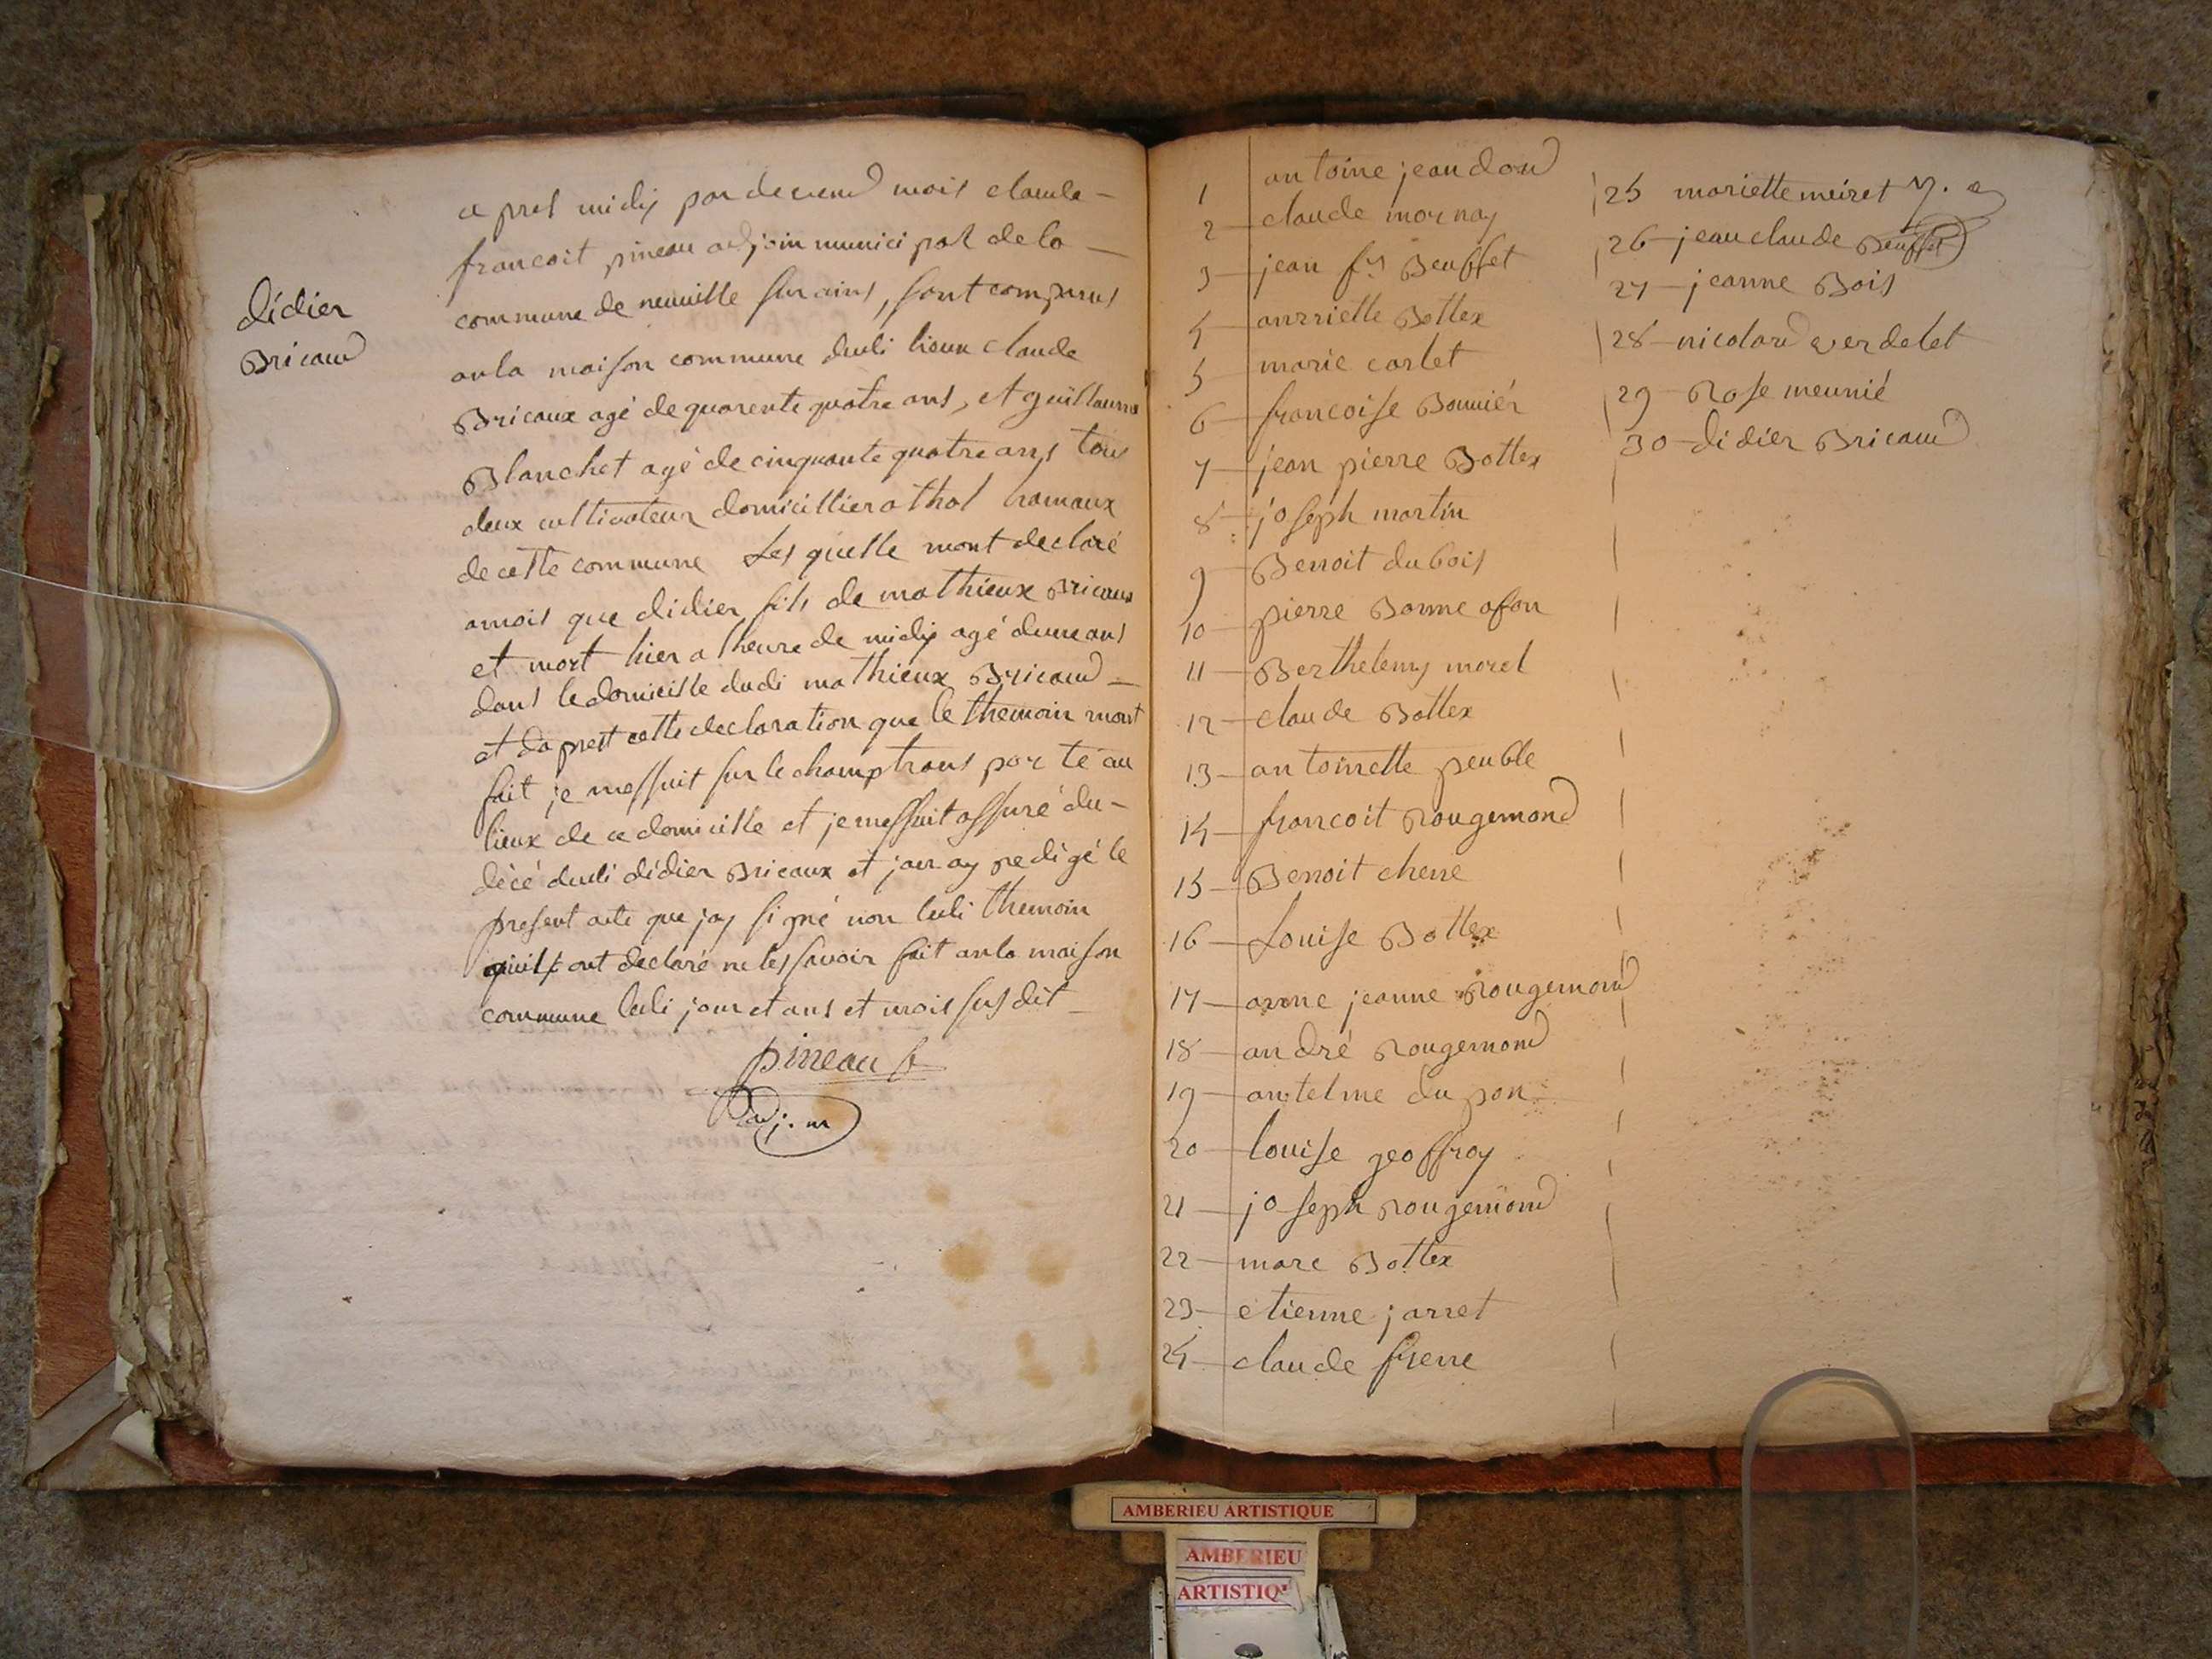 didier
Bricaud
a pres midy par devend mois claude -
francoit pineau adjoin municipal de la -
commune de neuville sur ains, sont comparus
an la maison commune dudi lieux claude
Bricaux agé de quarente quatre ans, et guillaume
Blanchet agé de cinquante quatre ans tous
deux cultivateur domicillier a thol hamaux
de cette commune Les quelle mont declaré
a mois que didier fils de mathieux Bricaux
et mort hier a lheure de midy agé dun ans
dans le domicille dudi mathieux Bricaud -
et da prest cette declaration que le themoin mont
fait je messuit sur le champ trans por té au
lieux de ce domicille et je messuit assuré du -
décé dudi didier Bricaux et jan ay redigé le
present acte que jay signé non ledi themoin
quils ont declaré ne les savoir fait an la maison
commune ledi jour et ans et mois sus dit -
pineau
adj. m
1 antoine jeandond
2 claude mornay
3 jean fs Beuffet
4 anrriette Bottex
5 marie carlet
6 francoise Bonnier
7 jean pierre Bottex
8 joseph martin
9 Benoit dubois
10 pierre Bonne ofon
11 Berthelemy morel
12 claude Bottex
13 antoinette peuble
14 francoit Rougemond
15 Benoit chene
16 Louise Bottex
17 anne jeanne Rougemond
18 andré Rougemond
19 antelme du pon
20 louise geoffroy
21 joseph rougemond
22 marc Bottex
23 etienne jarret
24 claude frene
25 mariette meiret
26 jean claude Beuffet
27 jeanne Bois
28 nicolard verdelet
29 Rose meunié
30 didier Bricaud
AMBERIEU ARTISTIQUE
AMBERIEU
ARTISTIQU